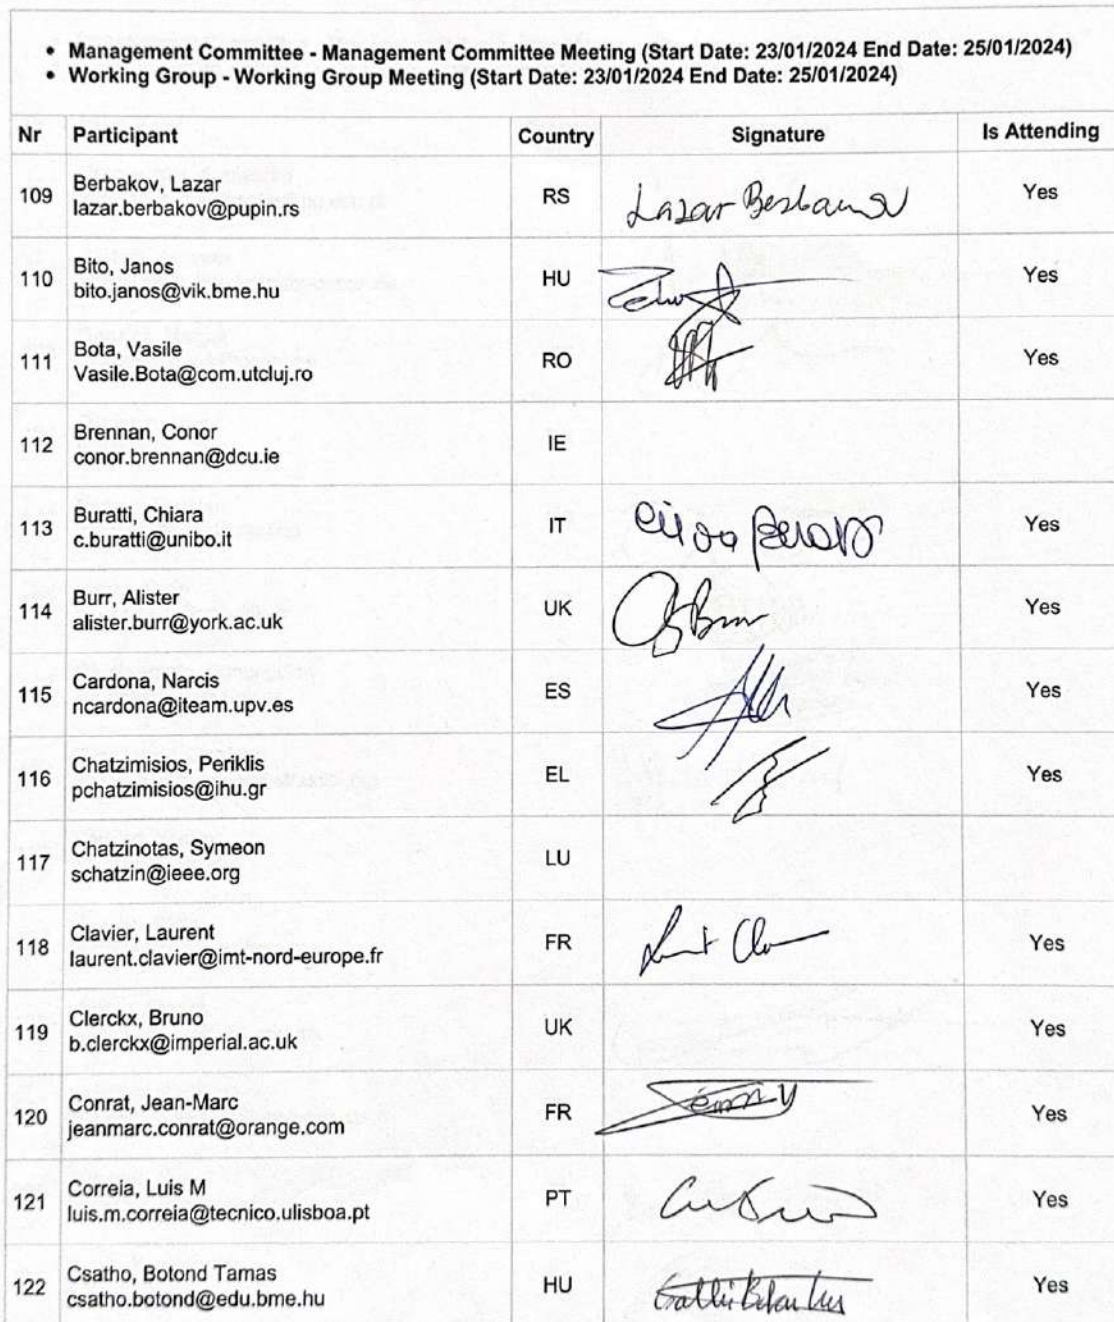 • Management Committee - Management Committee Meeting (Start Date: 23/01/2024 End Date: 25/01/2024)
• Working Group - Working Group Meeting (Start Date: 23/01/2024 End Date: 25/01/2024)
Nr Participant Country Signature Is Attending
109 Berbakov, Lazar RS Lazar Yes
lazar.berbakov@pupin.rs
110 Bito, Janos HU Yes
bito.janos@vik.bme.hu
111 Bota, Vasile RO Yes
Vasile.Bota@com.utcluj.ro
112 Brennan, Conor IE
conor.brennan@dcu.ie
113 Buratti, Chiara IT Yes
c.buratti@unibo.it
114 Burr, Alister UK Yes
alister.burr@york.ac.uk
115 Cardona, Narcis ES Yes
ncardona@iteam.upv.es
116 Chatzimisios, Periklis EL Yes
pchatzimisios@ihu.gr
117 Chatzinotas, Symeon LU
schatzin@ieee.org
118 Clavier, Laurent FR Yes
laurent.clavier@imt-nord-europe.fr
119 Clerckx, Bruno UK Yes
b.clerckx@imperial.ac.uk
120 Conrat, Jean-Marc FR Yes
jeanmarc.conrat@orange.com
121 Correia, Luis M PT Yes
luis.m.correia@tecnico.ulisboa.pt
122 Csatho, Botond Tamas HU Yes
csatho.botond@edu.bme.hu